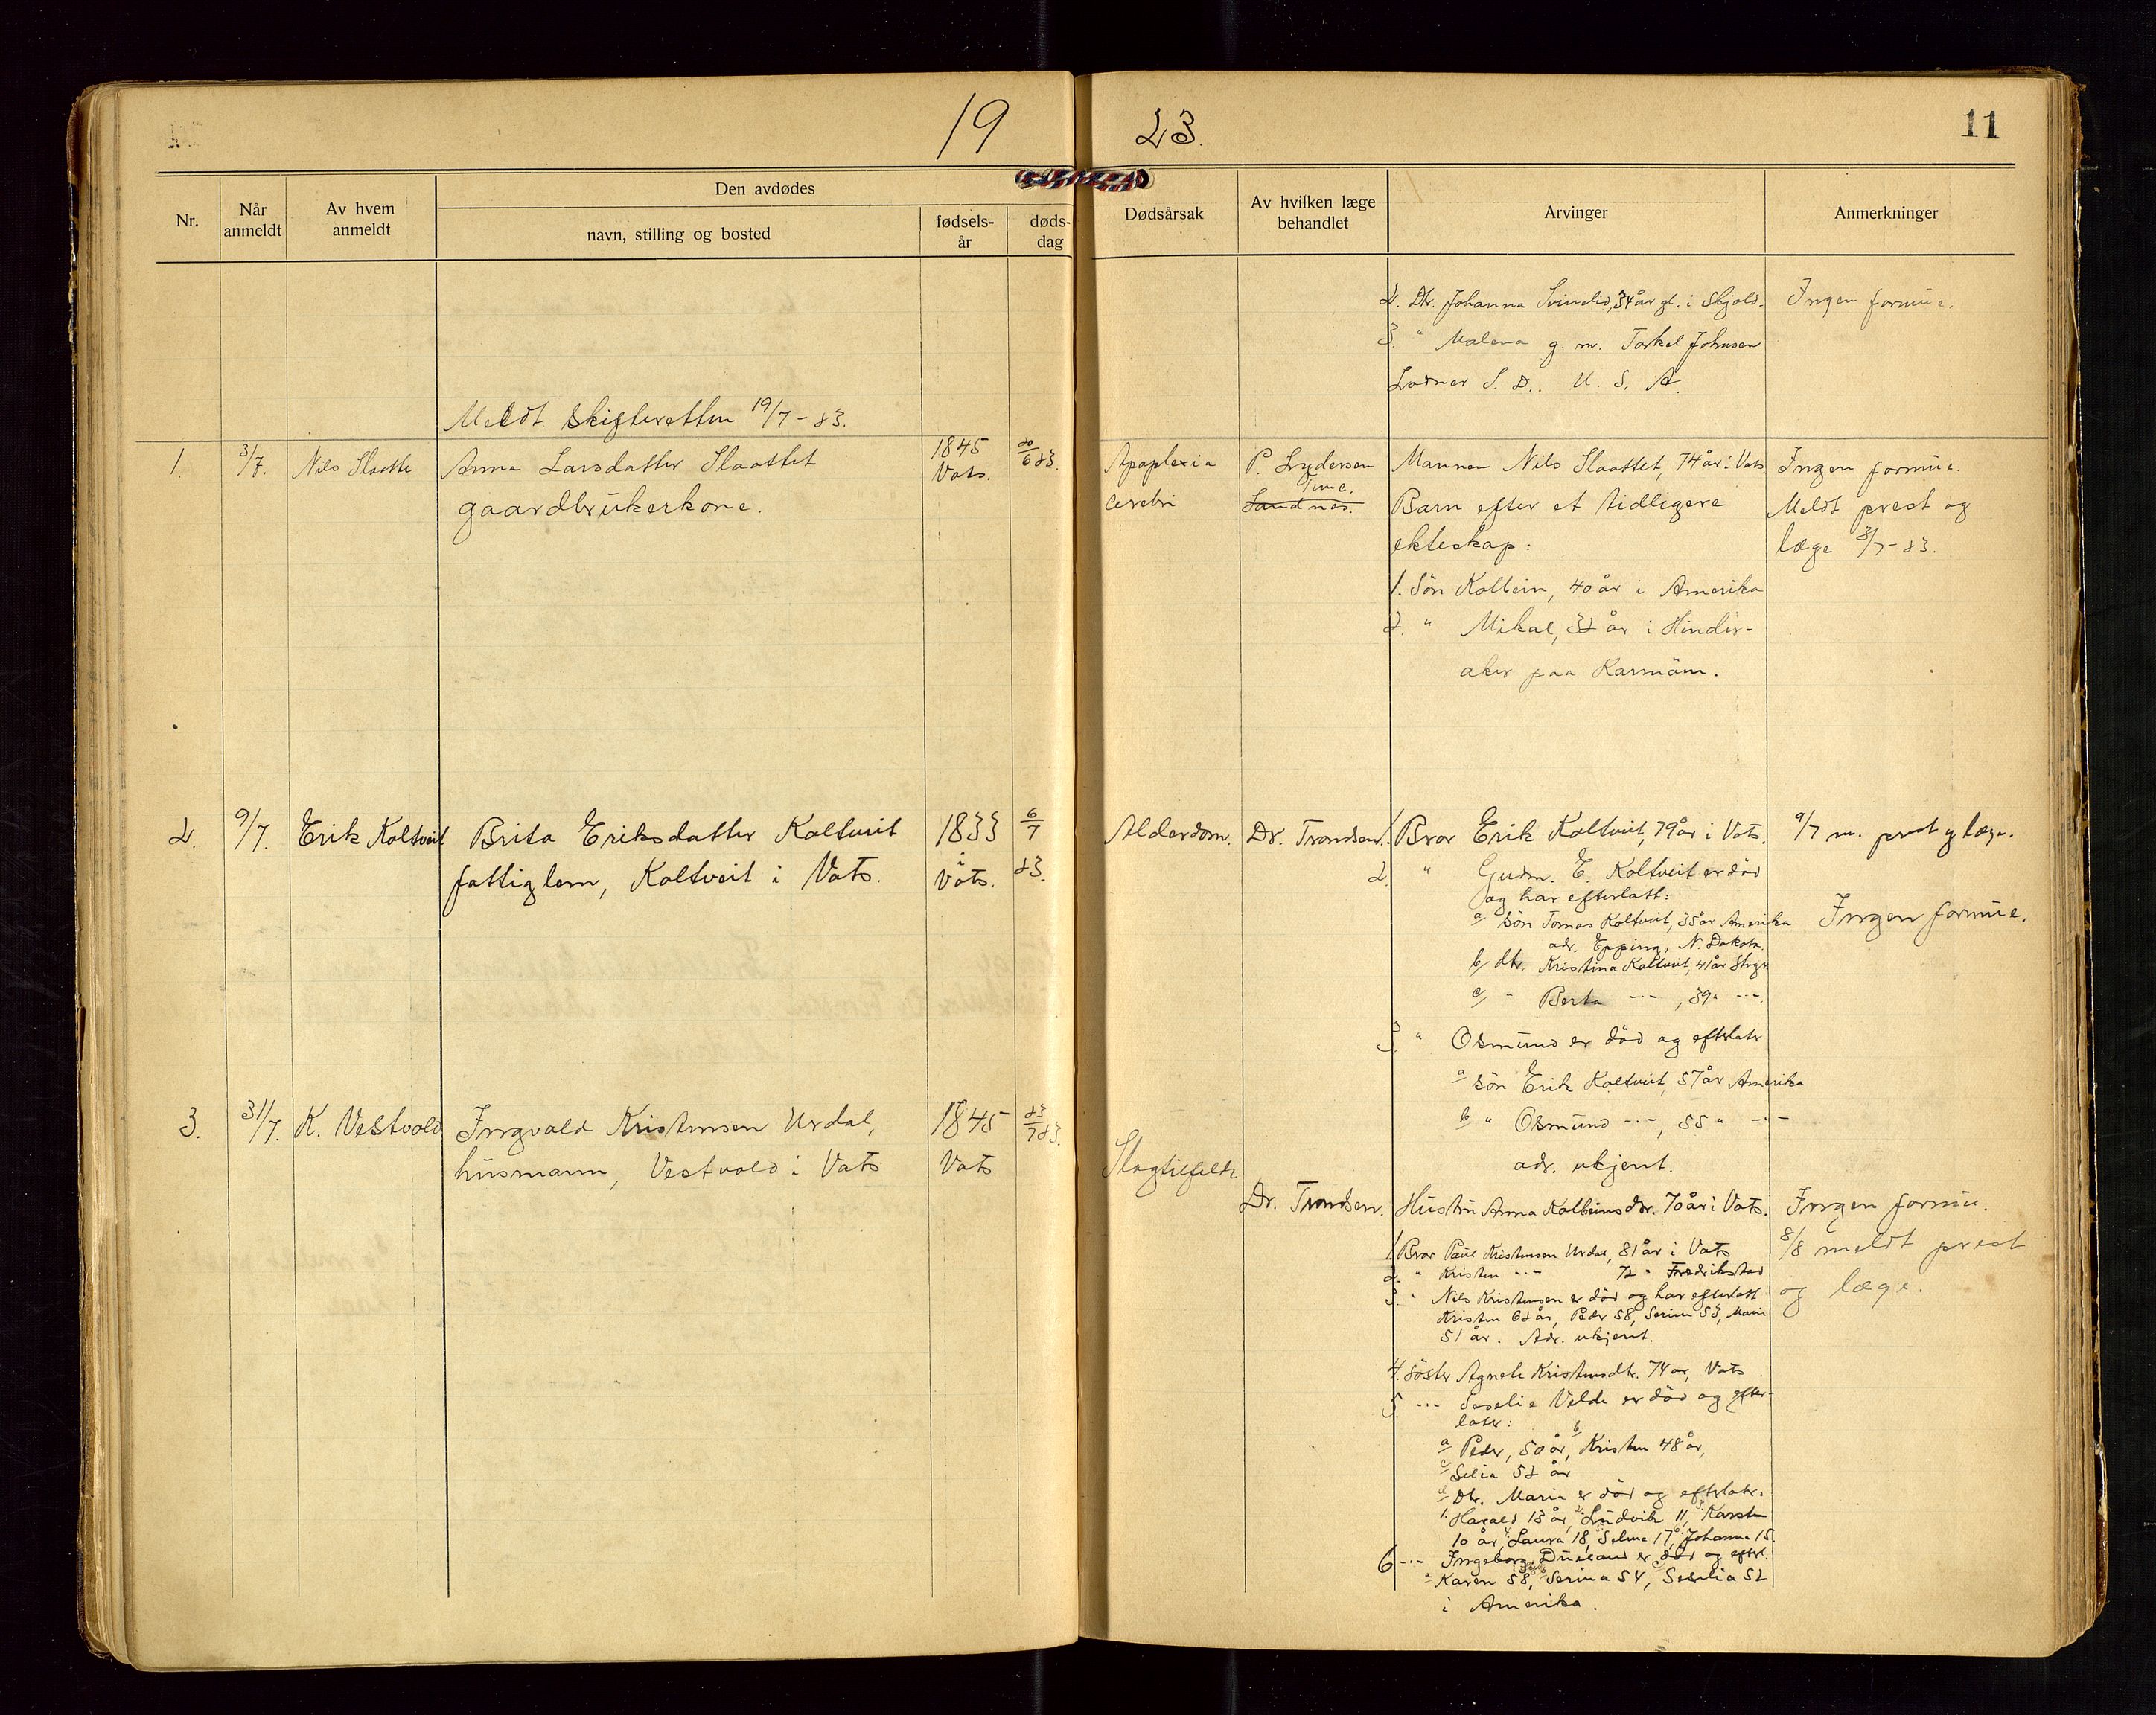 19 23.
11
Nr.
Når anmeldt
Av hvem anmeldt
Den avdødes
navn, stilling og bosted
fødsels-år
døds-dag
Dødsårsak
Av hvilken læge behandlet
Arvinger
Anmerkninger
2. Dtr. Johanna Svinelid, 34 år gl. i Skjold.
Ingen formue.
3. " Malena g. m. Torkel Johnsen
S. D.. U. S. A.
Meldt skifteretten 19/7-23.
1. 3/7. Nils Slaatte
Anna Larsdatter Slaattet
gaardbrukerkone.
1845
Vats.
20/6 23.
Apoplexia
cerebri
P. Lydersen
Time.
Sandnes.
Mannen Nils Slaattet, 74 år i Vats
Barn efter et tidligere
ekteskap:
1. Sön Kolbein, 40 år i Amerika
2. " Mikal, 32 år i Hinder-
aker paa Karmöm.
Ingen formue.
Meldt prest og
læge 3/7-23.
2. 9/7. Erik Koltveit
Brita Eriksdatter Koltveit
fattiglem, Koltveit i Vats.
1833
Vats.
6/7
23.
Alderdom.
Dr. Trondsen.
1. Bror Erik Koltveit, 79 år i Vats.
2. " Gudm. E. Koltveit er död
og har efterlatt:
a/ Sön Tomas Koltveit, 35 år Amerika
adr. Epping, N. Dakota.
b/ dtr. Kristina Koltveit, 41 år Stvgr.
c/ " Berta -"-, 39 " -"-.
3. " Osmund er död og efterlater
a/ Sön Erik Koltveit, 57 år Amerika
b/ " Osmund -"-, 55 " -"-
adr. ukjent.
9/7 m. prest og læge.
Ingen formue.
3. 31/7. K. Vestvold
Ingvald Kristensen Urdal,
husmann, Vestvold i Vats
1845
Vats
23/7 23.
Slagtilfelde
Dr. Trondsen.
Hustru Anna Kolbeinsdtr. 70 år i Vats.
1. Bror Paul Kristensen Urdal, 81 år i Vats
2. " Kristen -"- 72 " Fredrikstad
3. " Nils Kristensen er död og har efterlatt
Kristen 62 år, Peder 58, Serina 53, Marie
51 år. Adr. ukjent.
4. Söster Agnete Kristensdtr. 74 år, Vats
5. -"- Seselie Velde er död og efter-
later:
a/ Peder, 50 år, b/ Kristen 48 år,
c/ Selia 52 år
d/ Dtr. Maria er död og efterlater:
1. Harald 13 år, 2. Ludvik 11, 3. Karsten
10 år, 4. Laura 18, 5. Selma 17, 6. Johanna 15.
6 -"- Ingeborg Dueland er död og efterl.
a/ Karen 58, b/ Serina 54, c/ Seselia 52
i Amerika.
Ingen formue.
8/8 meldt prest
og læge.